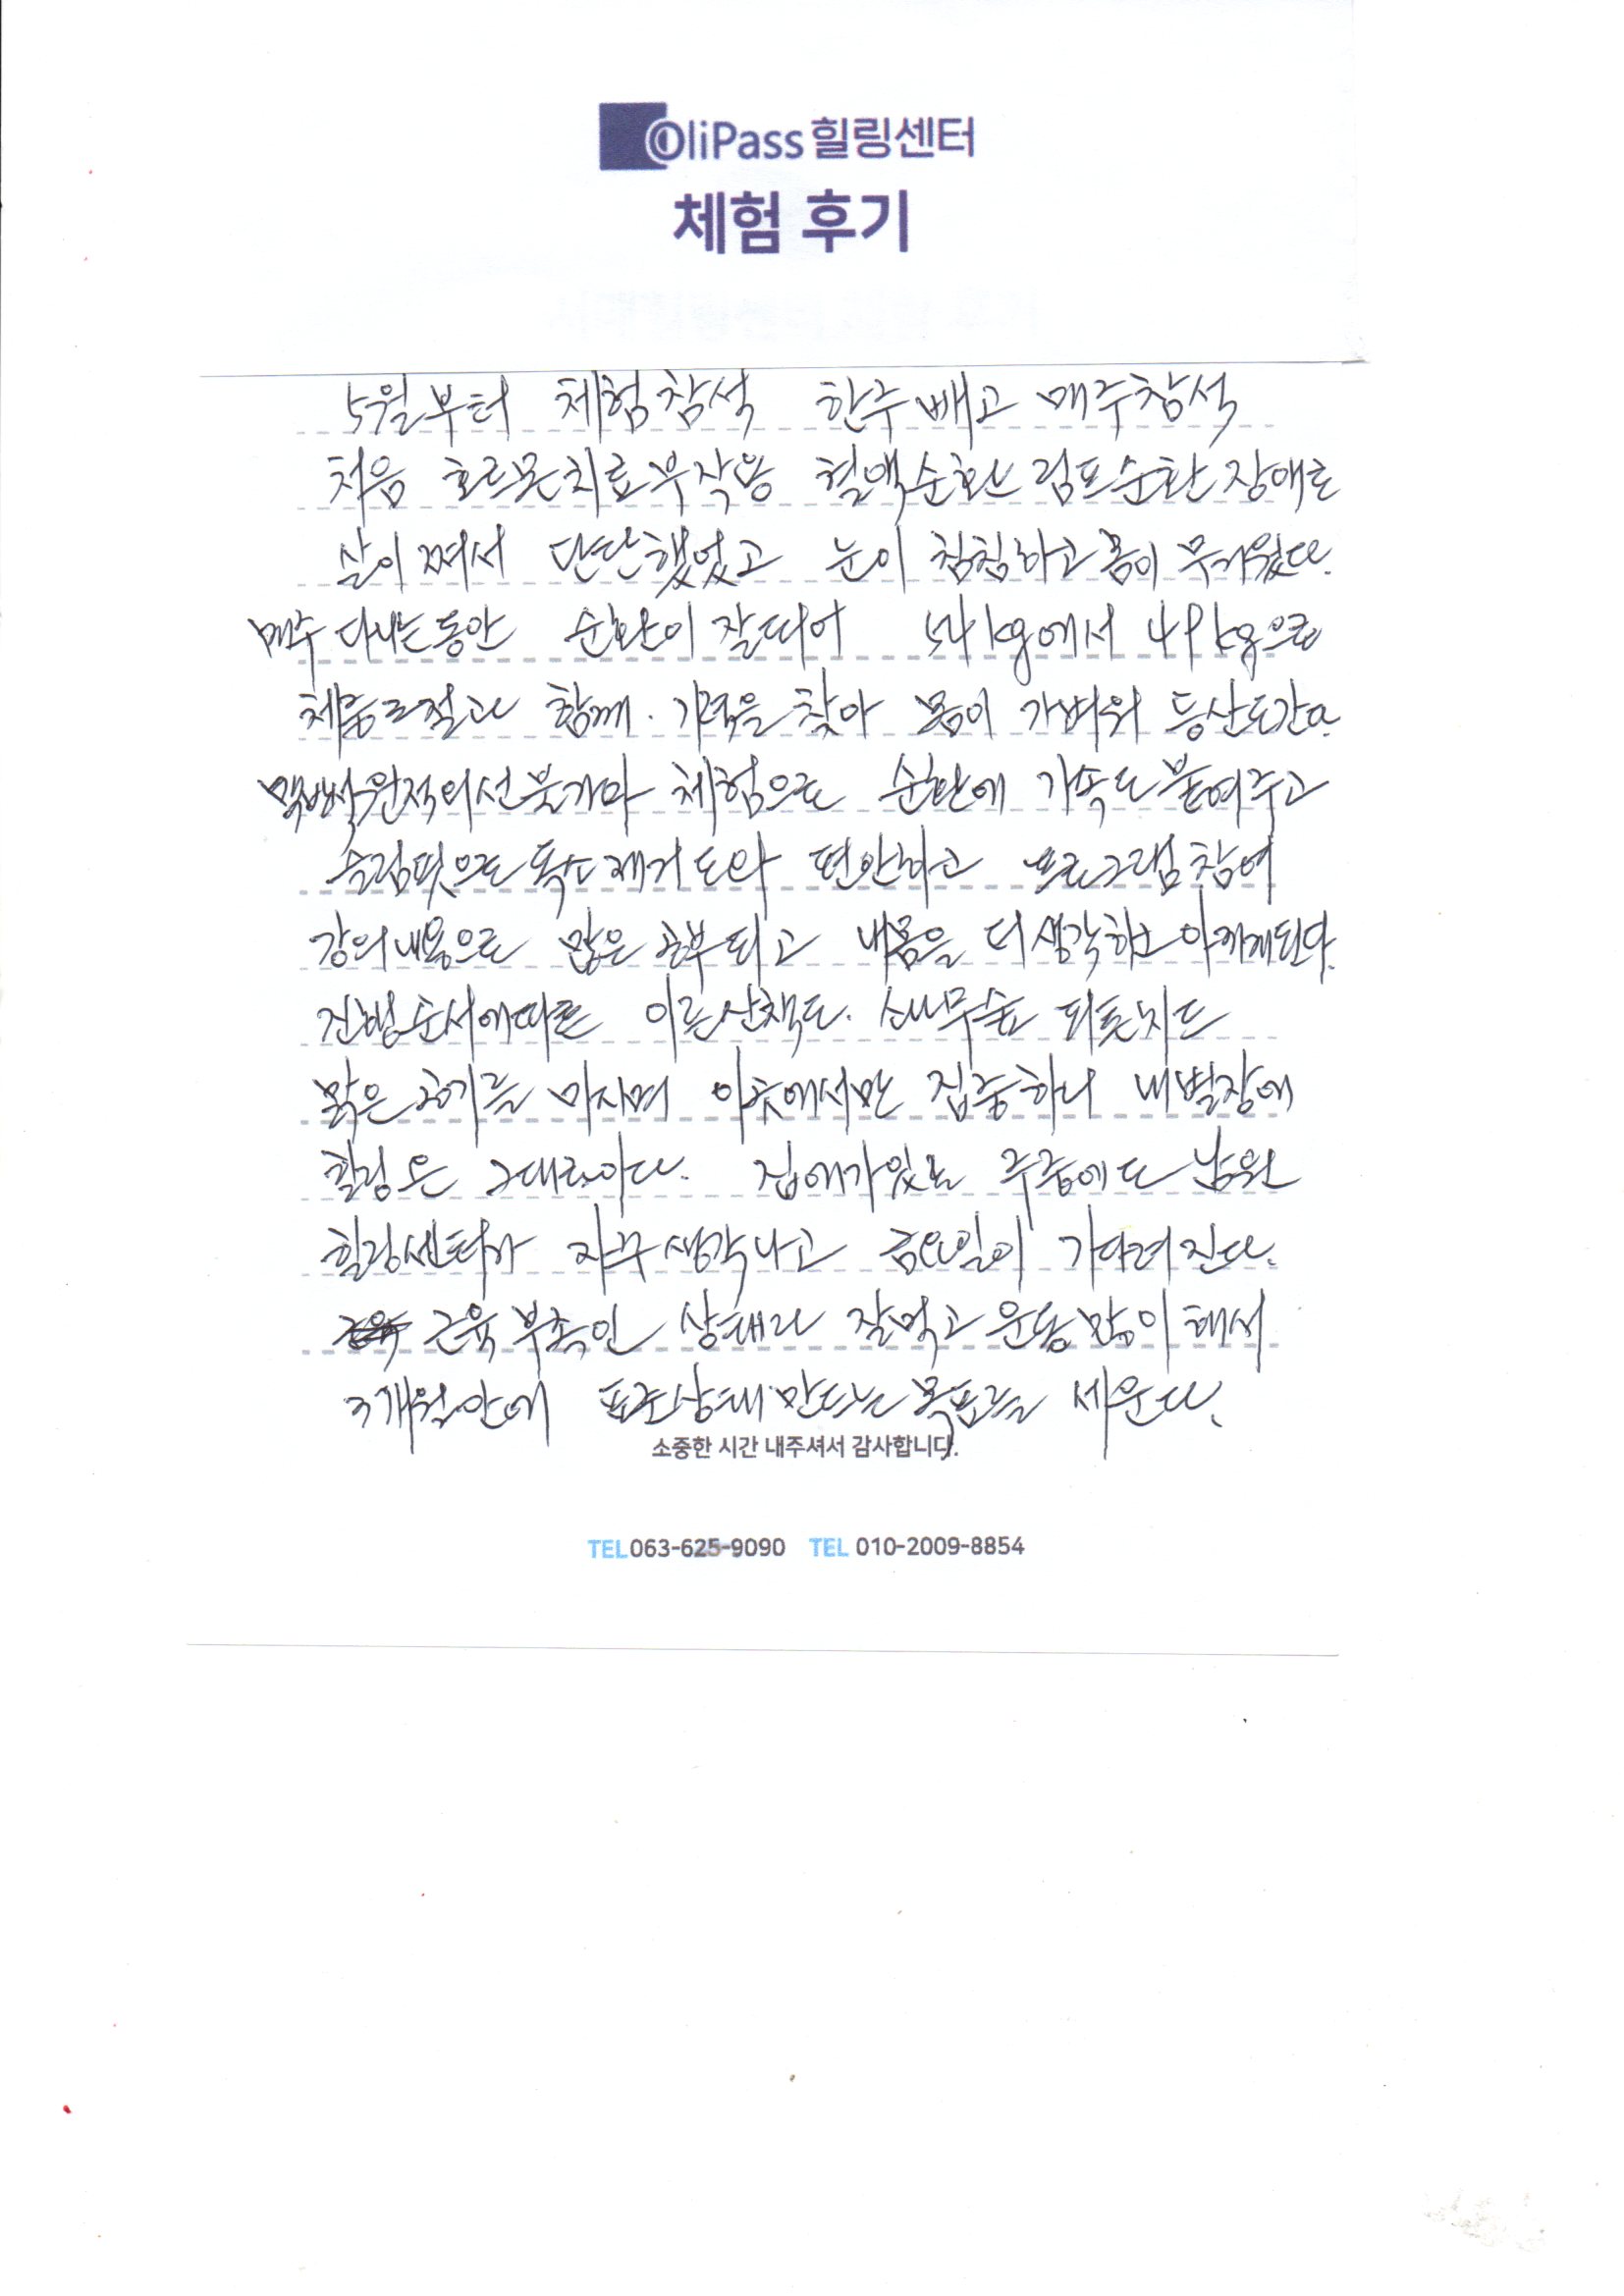 OliPass 힐링센터
체험 후기
5월부터 체험참석 한주 빼고 매주참석
처음 호르몬치료부작용 혈액순환 림프순환 장애로
살이 쪄서 단단했었고 눈이 침침하고 몸이 무거웠다.
매주 다니는동안 순환이 잘되어 54kg에서 49kg으로
체중조절과 함께. 기력을 찾아 몸이 가벼워 등산도간다.
맥반석원적외선 불가마 체험으로 순환에 가속도 붙여주고
슬림핏으로 독소제거 도와 편안하고 프로그램참여
강의내용으로 많은 공부되고 내몸을 더생각하고 아끼게된다.
진행순서에따른 이른산책도. 소나무숲 피톤치드
맑은공기를 마시며 이곳에서만 집중하니 내별장에
힐링온 그대로이다. 집에가있는 주중에도 남원
힐링센터가 자꾸생각나고 금요일이 기다려진다.
근육부족인 상태라 잘먹고 운동 많이해서
3개월안에 표준상태만드는 목표를 세운다.
소중한 시간 내주셔서 감사합니다.
TEL 063-625-9090 TEL 010-2009-8854